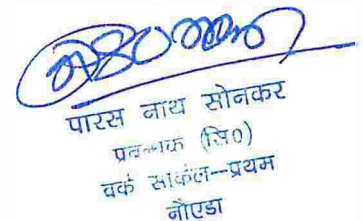 पारस नाथ सोनकर
प्रबन्धक (सि0)
वर्क सर्किल--प्रथम
नौएडा